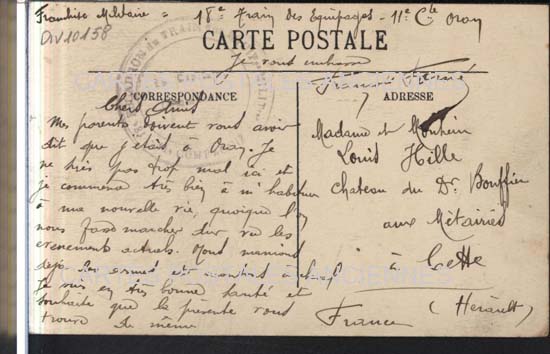 Franchise Militaire = 18e Train des Equipages - 11e Cie Oran
AV10158
CARTE POSTALE
Je vous embrasse
CORRESPONDANCE
ADRESSE
Chers Amis
Mes parents doivent vous avoir
dit que j'étais à Oran. Je
ne suis pas trop mal ici et
je commence très bien à m'habituer
à ma nouvelle vie, quoique l'on
nous fasse marcher dur vu les
evenements actuels. Nous
deja les armes et
Je suis en très bonne santé et
souhaite que la présente vous
trouve de même
Madame et Monsieur
Louis Hille
Chateau du Dr. Bouffier
aux Métairies
à Cette
(Hérault)
France
CARTES POSTALES ANCIENNES